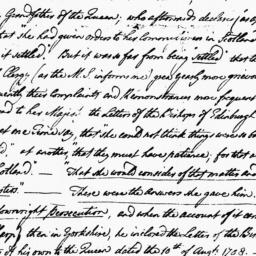 Grandfather of the Queen; who afterwards declared as
that she had given orders to her Commissioner in Scotland
it settled. But it was so far from being settled that
Clergy (as the M.S. informs me) grew yearly more grievous
their Complaints and Remonstrances more frequent
to her Majesty the Letters of the Bishops of Edinburgh
at one Time say, that she could not think things were so b
at another, "that they must have patience, for that
Scotland". — That she would consider of that matter and
These were the Answers she gave him.
Persecution, and when the account of it came
Sharp then in Yorkshire, he inclosed the Letters of the B
of his own to the Queen dated the 10th of Augt. 1708.